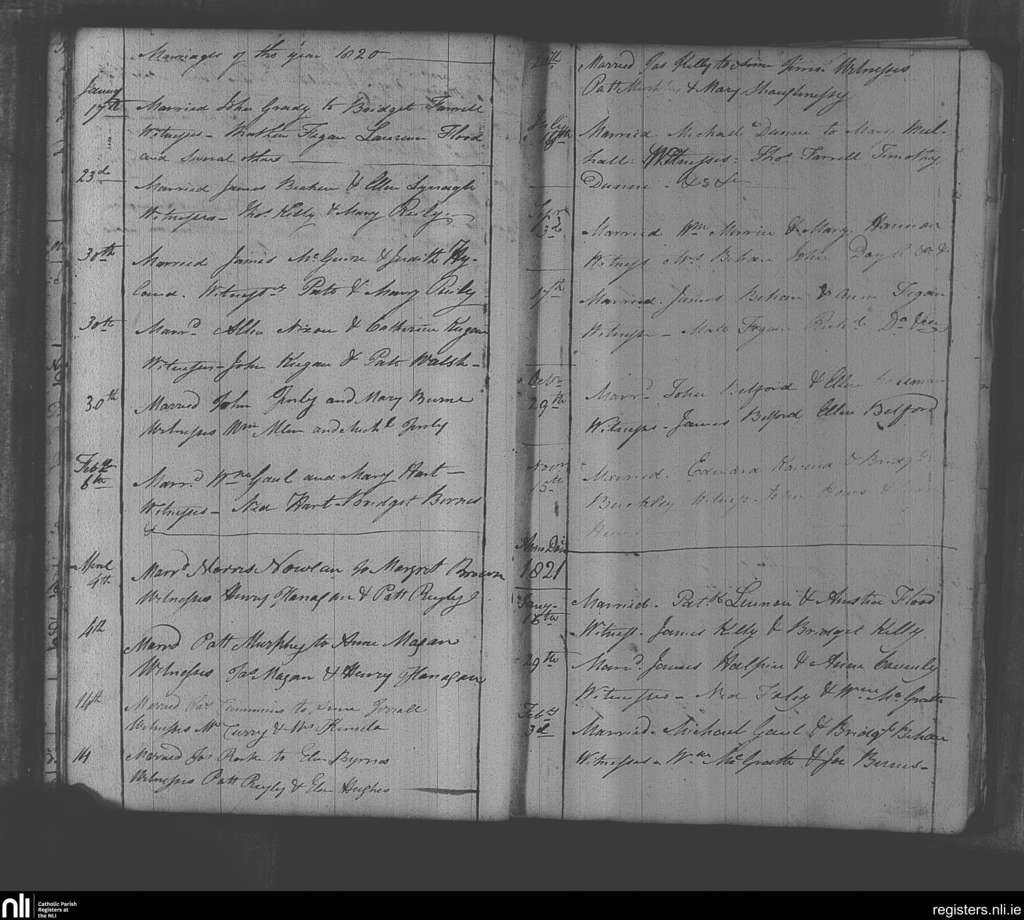 Marriages of the year 1820
January
17th Married John Grady to Bridget Farrell
Witnesses - Mathew Fegan Laurence Flood
and several others
23d
Married James Behan & Ellen Lynagh
Witnesses - Thos Kelly & Mary Reily
30th Married James McGuire & Judith Hy-
land. Witnesses Patt & Mary Reily
30th Marrd Allen Nixon & Catherine Keegan
Witnesses - John Keegan & Patt Walsh -
30th Married John and Mary Burne
Witnesses Wm Allen and Michl
Feb
6th Marrd Wm Gaul and Mary Hart -
Witnesses - Ned Hart Bridget Burnes
&
April
4th Marrd Norris Nowlan to Margret Brown
Witnesses Henry Flanagan & Patt Rigby
4th
Marrd Patt Murphy to Anne Magan
Witnesses Jas Magan & Henry Flanagan
14th Married Cummins to Anne
Witnesses Mr Curry & Mrs
14 Married Jos to Elen Byrnes
Witnesses Patt Rigby & Elen Hughes
Married Jas Kelly to Anne Witnesses
Patt & Mary Shaughnessy
July
Married Michael Dunne to Mary Mul-
hall. Witnesses: Thos Farrell Timothy
Dunne - &c &c
3d Married Wm & Mary Hannan
Witness Behan John
17th Married. James Behan & Anne Fegan
Witness - Fegan
Octr
29th Marrd. John Belford & Ellen
Witness - James Belford Ellen Belford
Novr
15th Married. Edward & Bridget
Buckley Witness John
Anno Dom
1821
Jany
18th Married - Patk Lennon & Flood
Witness. James Kelly & Bridget Kelly
29th Marrd. James Halpin & Anne
Witnesses - Ned & Wm McGrath
Feb
3d Married - Michael Gaul & Bridgt Behan
Witnesses - Wm McGrath & Joe Burnes -
nli
Catholic Parish
Registers at
the NLI
registers.nli.ie